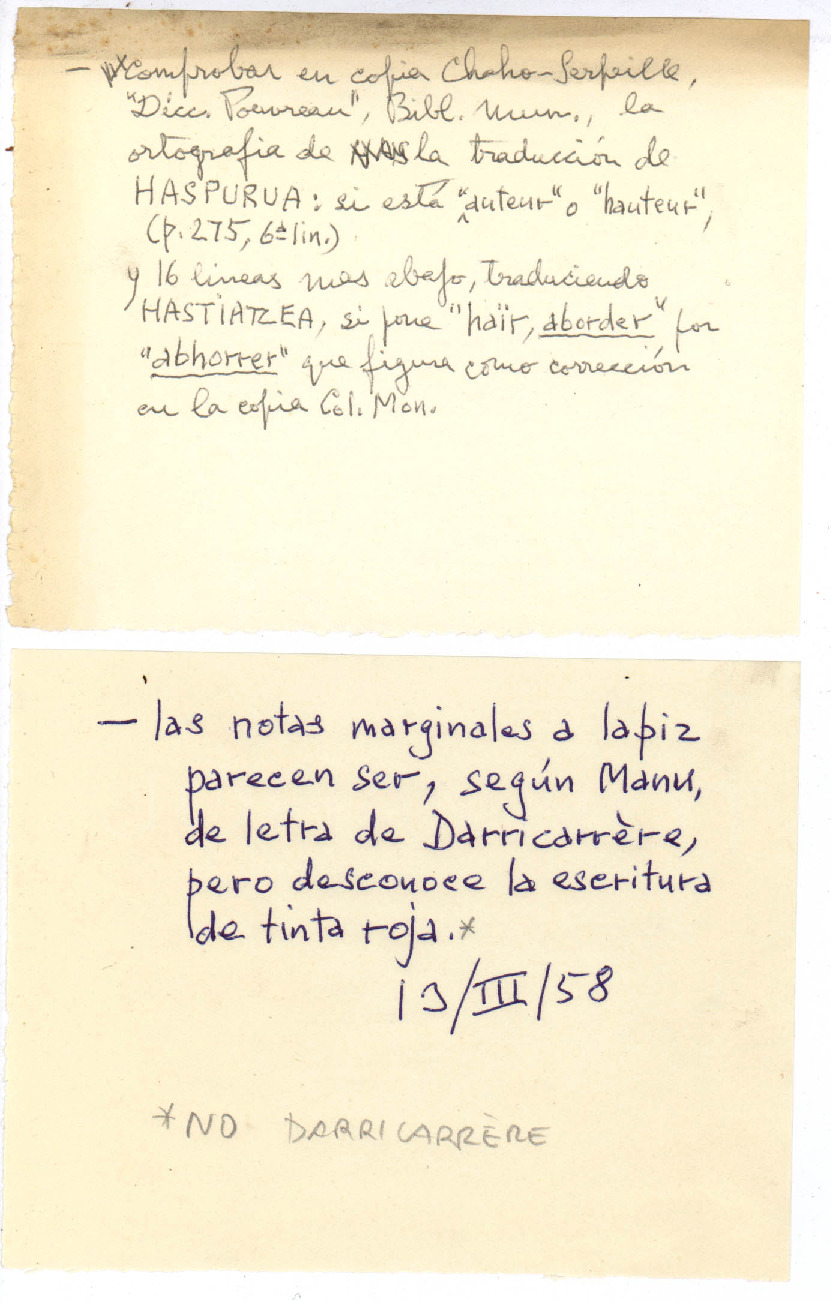 — Comprobar en copia Chaho-Serpeille,
"Dicc. Pouvreau", Bibl. Mun., la
ortografia de la traducción de
HASPURUA: si está "auteur" o "hauteur",
(p. 275, 6ª lin.)
y 16 lineas mas abajo, traduciendo
HASTIATZEA, si pone "haïr, aborder" por
"abhorrer" que figura como corrección
en la copia Col. Mon.
— las notas marginales a lapiz
parecen ser, según Manu,
de letra de Darricarrère,
pero desconoce la escritura
de tinta roja.*
13/III/58
*NO DARRICARRÈRE